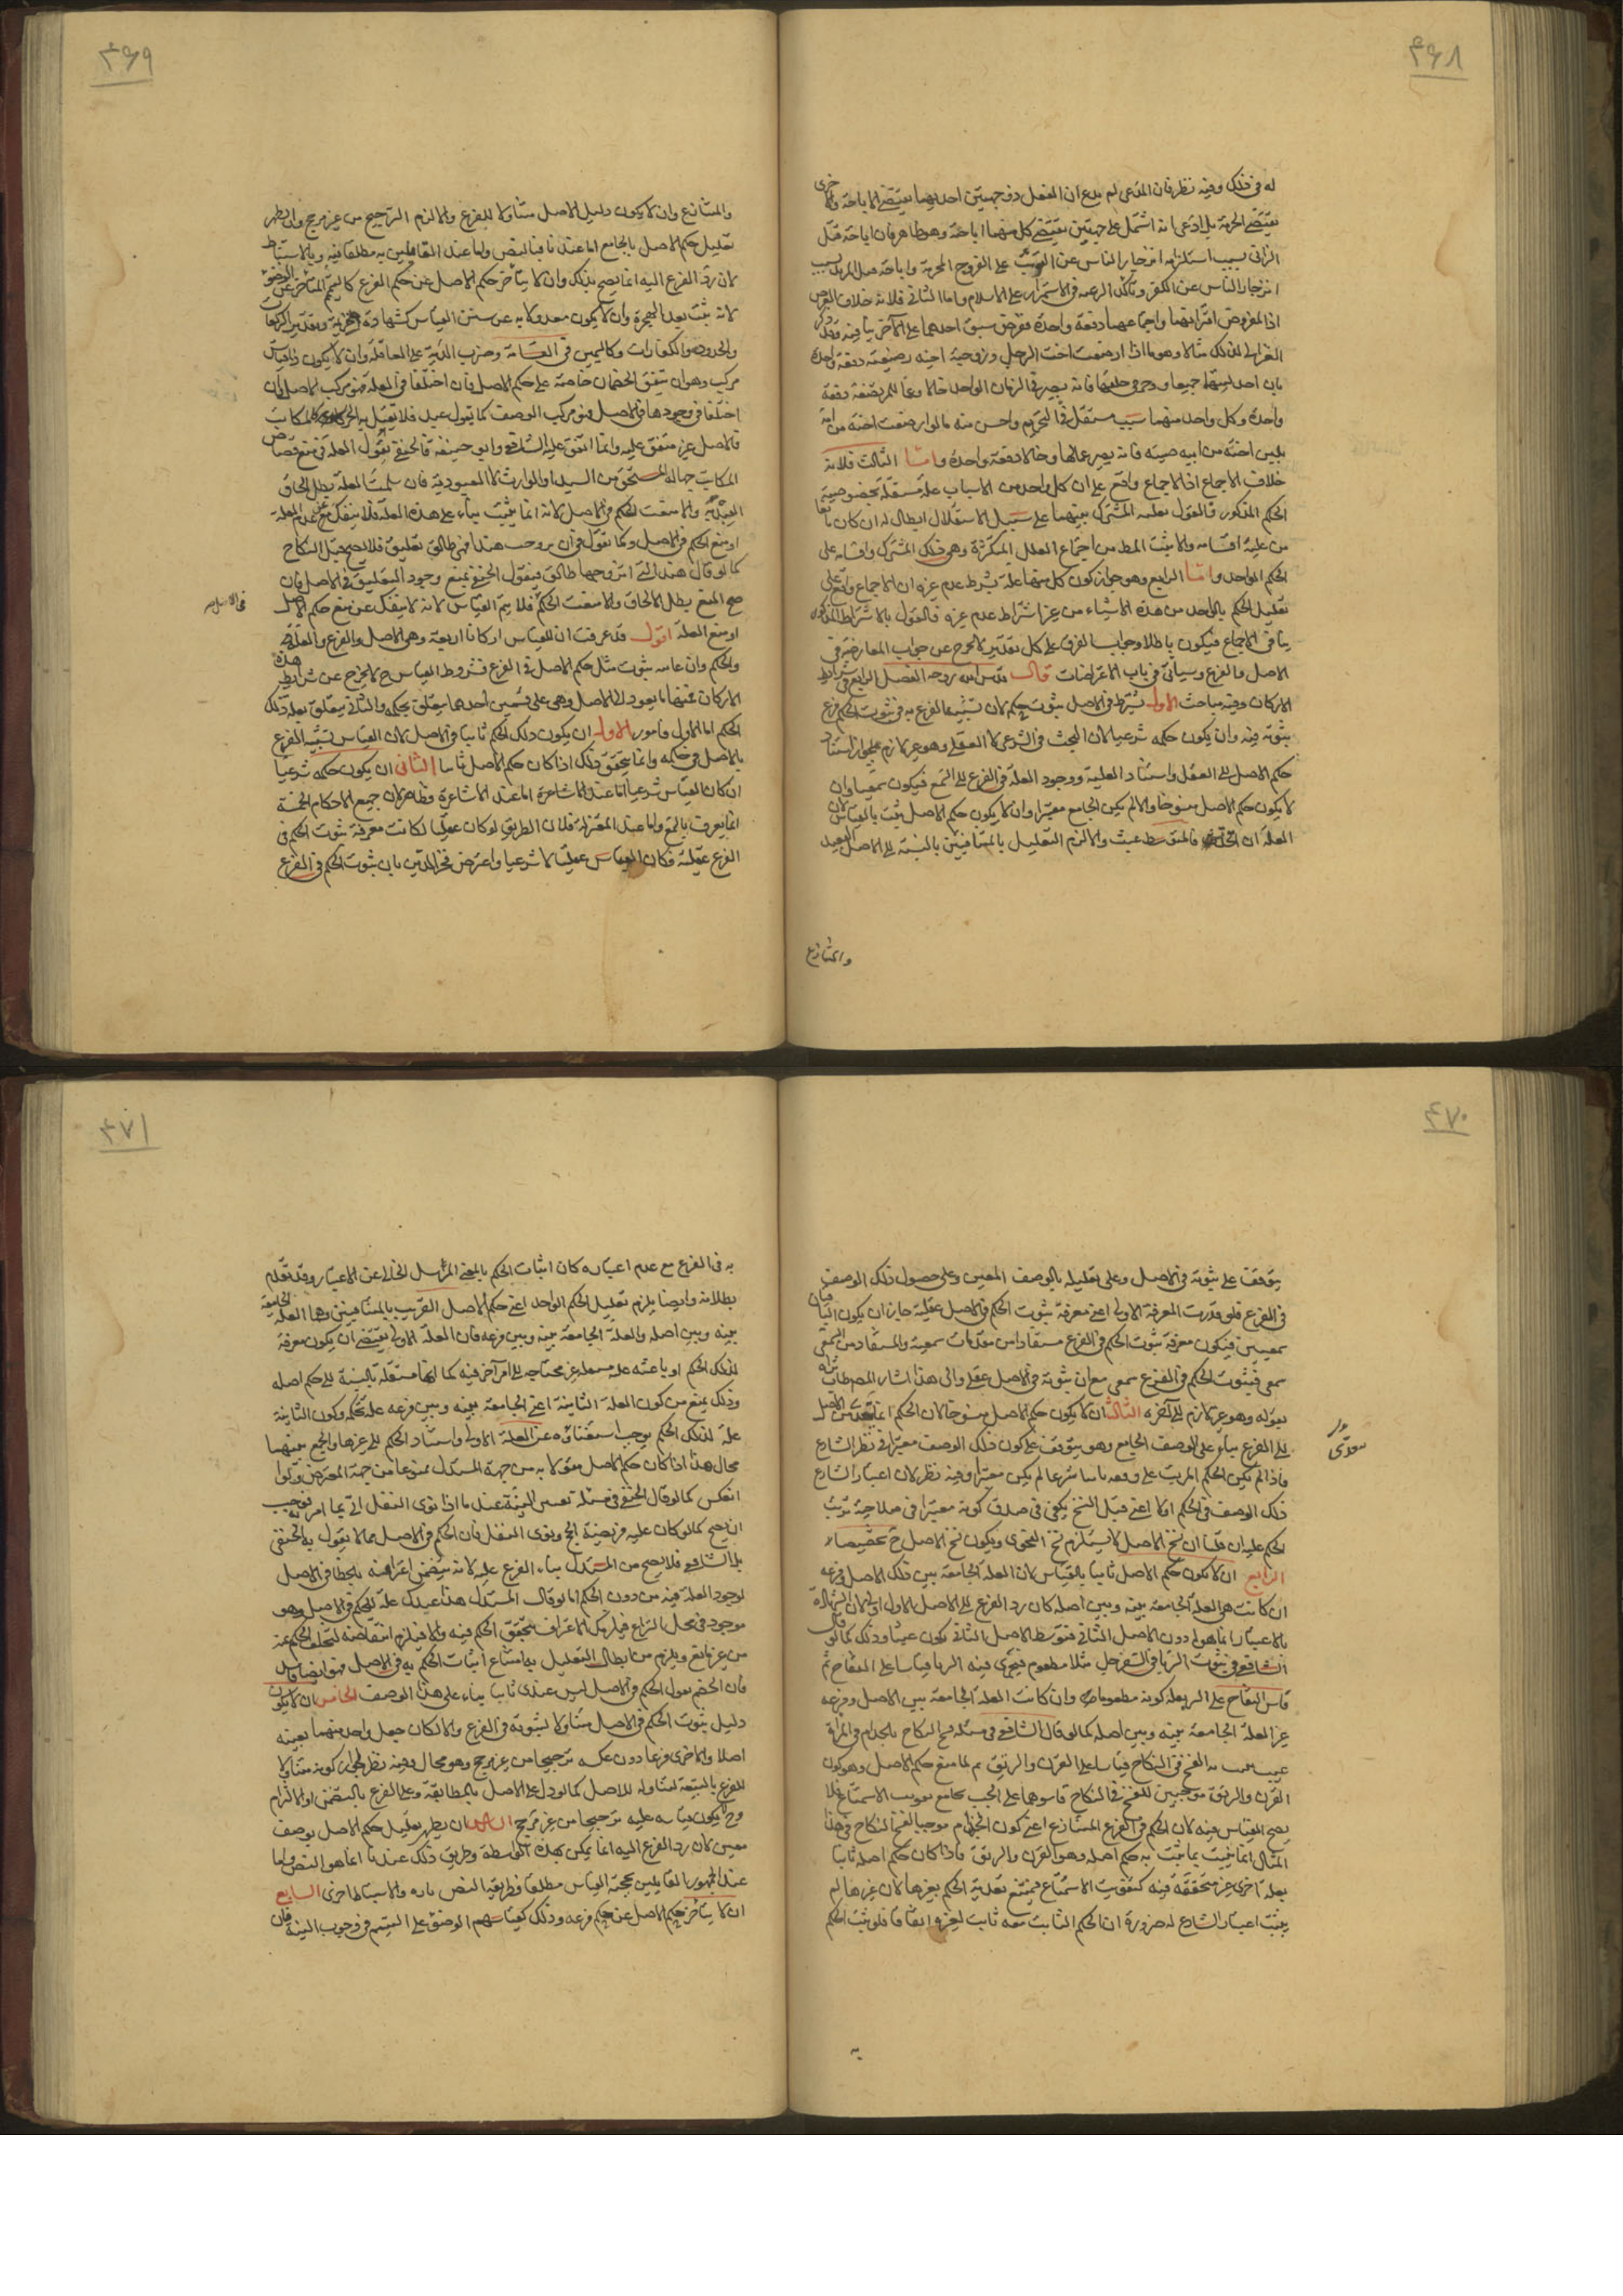 ٤٦٨
له في ذلك وفيه نظر فان المدعى لم يدع ان الفعل ذو جهتين احديهما يقتضي الاباحة والاخرى
يقتضي الحرمة بل ادعى انه اشتمل على جهتين يقتضي كل منهما اباحة وهو ظاهر فان اباحة قتل
الزاني بسبب استلزامه انزجار الناس عن على الفروج المحرمة واباحة قتل المرتد بسبب
انزجار الناس عن الكفر وتأكد الرغبة في الاستمرار على الاسلام واما الثاني فلانه خلاف الفرض
اذ المفروض اقترانهما واجتماعهما دفعة واحدة ففرض سبق احدهما على الآخر ينافيه وقد ذكر
الغزالي لذلك مثالا وهو ما اذا ارضعت اخت الرجل وزوجة اخيه رضيعة دفعة واحدة
بان احد لبنهما جميعا في حلقها فانه يصير في الزمان الواحد خالا وعما للمرتضعة دفعة
واحدة وكل واحد منهما سبب مستقل في التحريم واحسن منه ما لو ارضعت اخته من امه
بلبن اخته من ابيه صبية فانه يصير خالا دفعة واحدة واما الثالث فلانه
خلاف الاجماع اذ الاجماع واقع على ان كل واحد من الاسباب علة مستقلة بخصوصية
الحكم المذكور فالقول بعلية المشترك بينهما على سبيل الاستقلال ابطال له ان كان مانعا
من علية اقسامه والا يثبت المط من اجتماع العلل المتكثرة وهي ذلك المشترك واقسامه على
الحكم الواحد واما الرابع وهو جواز كون كل منهما علة بشرط عدم غيره ان الاجماع واقع على
تعليل الحكم بالواحد من هذه الاشياء من غير اشتراط عدم غيره فالقول بالاشتراط المذكور
ينافي الاجماع فيكون باطلا وجواب الفرق على كل تقدير لا يخرج عن جواب المعارضة في
الاصل والفرع وسيأتي في باب الاعتراضات قال قدس الله روحه الفصل الرابع في شرايط
الاركان وفيه مباحث الاول يشترط في الاصل ثبوت حكمه لان تشبيه الفرع به في ثبوت الحكم فرع
ثبوته فيه وان يكون حكمه شرعيا لان البحث في الشرعي لا العقلي وهو غير لازم لجواز استناد
حكم الاصل الى العقل واستناد العلية ووجود العلة في الفرع الى السمع فيكون سمعيا وان
لا يكون حكم الاصل منسوخا والا لم يكن الجامع معتبرا وان لا يكون حكم الاصل يثبت بالقياس لان
العلة ان اتحدت فالمتوسط عبث والا لزم التعليل بالمتنافيين بالنسبة الى الاصل البعيد
والمتنازع
٤٦٩
والمتنازع وان لا يكون دليل الاصل متناولا للفرع والا لزم الترجيح من غير مرجح وان يظهر
تعليل حكم الاصل بالجامع اما عندنا فبالنص واما عند القائلين به مطلقا فبه وبالاستنباط
لان رد الفرع اليه انما يصح بذلك وان لا يتأخر حكم الاصل عن حكم الفرع كالتيمم المتأخر عن الوضوء
لانه يثبت بعد الهجرة وان لا يكون معدولا به عن سنن القياس كشهادة خزيمة وتقدير الركعات
والحدود والكفارات وكاليمين في القسامة وضرب الدية على العاقلة وان لا يكون ذا قياس
مركب وهو ان يتفق الخصمان خاصة على حكم الاصل فان اختلفا في العلة فهو مركب الاصل وان
اختلفا في وجودها في الاصل فهو مركب الوصف كما يقول عبد فلا يقتل به الحر كالمكاتب
فالاصل غير متفق عليه وانما اتفق عليه الشافعي وابو حنيفة فالحنفي يقول العلة في منع قصاص
المكاتب جهالة المستحق من السيد او الوارث لا العبودية فان سلمت العلة بطل الحاق
العبد به والا منعت الحكم في الاصل لانه انما يثبت بناء على هذه العلة فلا ينفك عن عدم العلة
او منع الحكم في الاصل وكما تقول في ان تزوجت هندا فهي طالق تعليق فلا يصح قبل النكاح
كما لو قال هند التي اتزوجها طالق فيقول الحنفي يمنع وجود التعليق في الاصل فان
صح المنع بطل الالحاق والا منعت الحكم فلا يتم القياس لانه لا ينفك عن منع حكم الاصل
او منع العلة اقول قد عرفت ان للقياس اركانا اربعة وهي الاصل والفرع والعلة
والحكم وان غايته ثبوت مثل حكم الاصل في الفرع فشروط القياس ح لا يخرج عن شرايط هذه
الاركان فمنها ما يعود الى الاصل وهي على قسمين احدهما يتعلق بحكمه والثاني يتعلق بعلة ذلك
الحكم اما الاول فامور الاول ان يكون ذلك الحكم ثابتا في الاصل لان القياس تشبيه الفرع
بالاصل في حكمه وانما يتحقق ذلك اذا كان حكم الاصل ثابتا الثاني ان يكون حكمه شرعيا
ان كان القياس شرعيا اما عند الاشاعرة فظاهر لان جميع الاحكام الخمسة
انما يعرف بالسمع واما عند المعتزلة فلان الطريق لو كان عقليا لكانت معرفة ثبوت الحكم في
الفرع عقلية فكان القياس عقليا لا شرعيا واعترض فخر الدين بان ثبوت الحكم في الفرع
٤٧٠
يتوقف على ثبوته في الاصل وعلى تعليله بالوصف المعين وعلى حصول ذلك الوصف
في الفرع فلو قدرت المعرفة الاولى اعني معرفة ثبوت الحكم في الاصل عقلية جاز ان يكون الباقيان
سمعيتين فيكون معرفة ثبوت الحكم في الفرع مستفادا من مقدمات سمعية والمستفاد من السمعي
سمعي فثبوت الحكم في الفرع سمعي مع ان ثبوته في الاصل عقلي والى هذا اشار المصنف طاب ثراه
بقوله وهو غير لازم الى آخره الثالث ان لا يكون حكم الاصل منسوخا لان الحكم انما يتعدى من الاصل
الى الفرع بناء على الوصف الجامع وهو يتوقف على كون ذلك الوصف معتبرا في نظر الشارع
فاذا لم يكن الحكم المرتب على وفقه ثابتا شرعا لم يكن معتبرا وفيه نظر لان اعتبار الشارع
ذلك الوصف في الحكم اولا اعني قبل النسخ يكفي في صدق كونه معتبرا في صلاحية ترتب
الحكم عليه ان قلنا ان نسخ الاصل لا يستلزم نسخ الفحوى ويكون نسخ الاصل ح تخصيصا
الرابع ان لا يكون حكم الاصل ثابتا بالقياس لان العلة الجامعة بين ذلك الاصل وفرعه
ان كانت هي العلة الجامعة بينه وبين اصله كان رد الفرع الى الاصل الاول اولى لان الشهادة
بالاعتبار انما هو له دون الاصل الثاني فتوسط الاصل الثاني يكون عبثا وذلك كما لو قال
الشافعي في ثبوت الربا في السفرجل مثلا مطعوم فيجري فيه الربا قياسا على التفاح ثم
قاس التفاح على البر بعلة كونه مطعوما وان كانت العلة الجامعة بين الاصل وفرعه
غير العلة الجامعة بينه وبين اصله كما لو قال الشافعي في مسئلة فسخ النكاح بالجذام في المرأة
عيب يثبت به الفسخ في النكاح قياسا على القرن والرتق ثم لما منع حكم الاصل وهو كون
القرن والرتق موجبين للفسخ في النكاح قاسوهما على الجب بجامع تفويت الاستمتاع فلا
يصح القياس فيه لان الحكم في الفرع المتنازع اعني كون الجذام موجبا لفسخ النكاح في هذا
المثال انما يثبت بما ثبت به حكم اصله وهو القرن والرتق فاذا كان حكم اصله ثابتا
بعلة اخرى غير متحققة فيه كتفويت الاستمتاع فيمتنع تعدية الحكم بغيرها لان غيرها لم
يثبت اعتبار الشارع له ضرورة ان الحكم الثابت معه ثابت لغيره اتفاقا فلو ثبت الحكم
به
٤٧١
به في الفرع مع عدم اعتباره كان اثبات الحكم بالمعنى المرسل الخالي عن الاعتبار وقد تقدم
بطلانه وايضا يلزم تعليل الحكم الواحد اعني حكم الاصل القريب بالمتنافيين وهما العلة الجامعة
بينه وبين اصله والعلة الجامعة بينه وبين فرعه فان العلة الاولى يقتضي ان يكون معرفة
لذلك الحكم او باعثه غير محتاجة الى امر آخر فيه كما انها مستقلة بالنسبة الى حكم اصله
وذلك يمنع من كون العلة الثانية اعني الجامعة بينه وبين فرعه علة لحكمه وكون الثانية
علة لذلك الحكم يوجب استغناؤه عن العلة الاولى واستناد الحكم الى غيرها والجمع بينهما
محال هذا اذا كان حكم الاصل مقولا به من جهة المستدل ممنوعا من جهة المعترض ولو
انعكس كما لو قال الحنفي في مسئلة تعيين النية عندما اذا نوى النفل اتى بما امر به فوجب
ان يصح كما لو كان عليه فريضة الحج ونوى النفل فان الحكم في الاصل مما لا يقول به الحنفي
بل الشافعي فلا يصح من المستدل بناء الفرع عليه لانه يتضمن اعترافه بالخطأ في الاصل
لوجود العلة فيه من دون الحكم اما لو قال المستدل هذا عندك علة للحكم في الاصل وهو
موجود في محل النزاع فيلزمك الاعتراف بتحقق الحكم فيه والا فيلزم انتقاضه لتخلف الحكم عنه
من غير مانع ويلزم من ابطال التعليل به امتناع اثبات الحكم به في الاصل فهو ايضا باطل
فان الخصم يقول الحكم في الاصل ليس عندي ثابتا بناء على هذا الوصف الخامس ان لا يكون
دليل ثبوت الحكم في الاصل متناولا لثبوته في الفرع والا لكان جعل واحد منهما بعينه
اصلا والاخرى فرعا دون عكسه ترجيحا من غير مرجح وهو محال وفيه نظر لجواز كونه متناولا
للفرع بالتبعية لتناوله للاصل كما لو دل على الاصل بالمطابقة وعلى الفرع بالتضمن او الالتزام
وح لا يكون قياسه عليه ترجيحا من غير مرجح السادس ان يظهر تعليل حكم الاصل بوصف
معين لان رد الفرع اليه انما يمكن بهذه الواسطة وطريق ذلك عندنا انما هو النص واما
عند الجمهور القائلين بحجية القياس مطلقا فطريقه النص تارة والاستنباط اخرى السابع
ان لا يتأخر حكم الاصل عن حكم فرعه وذلك كقياسهم الوضوء على التيمم في وجوب النية فان